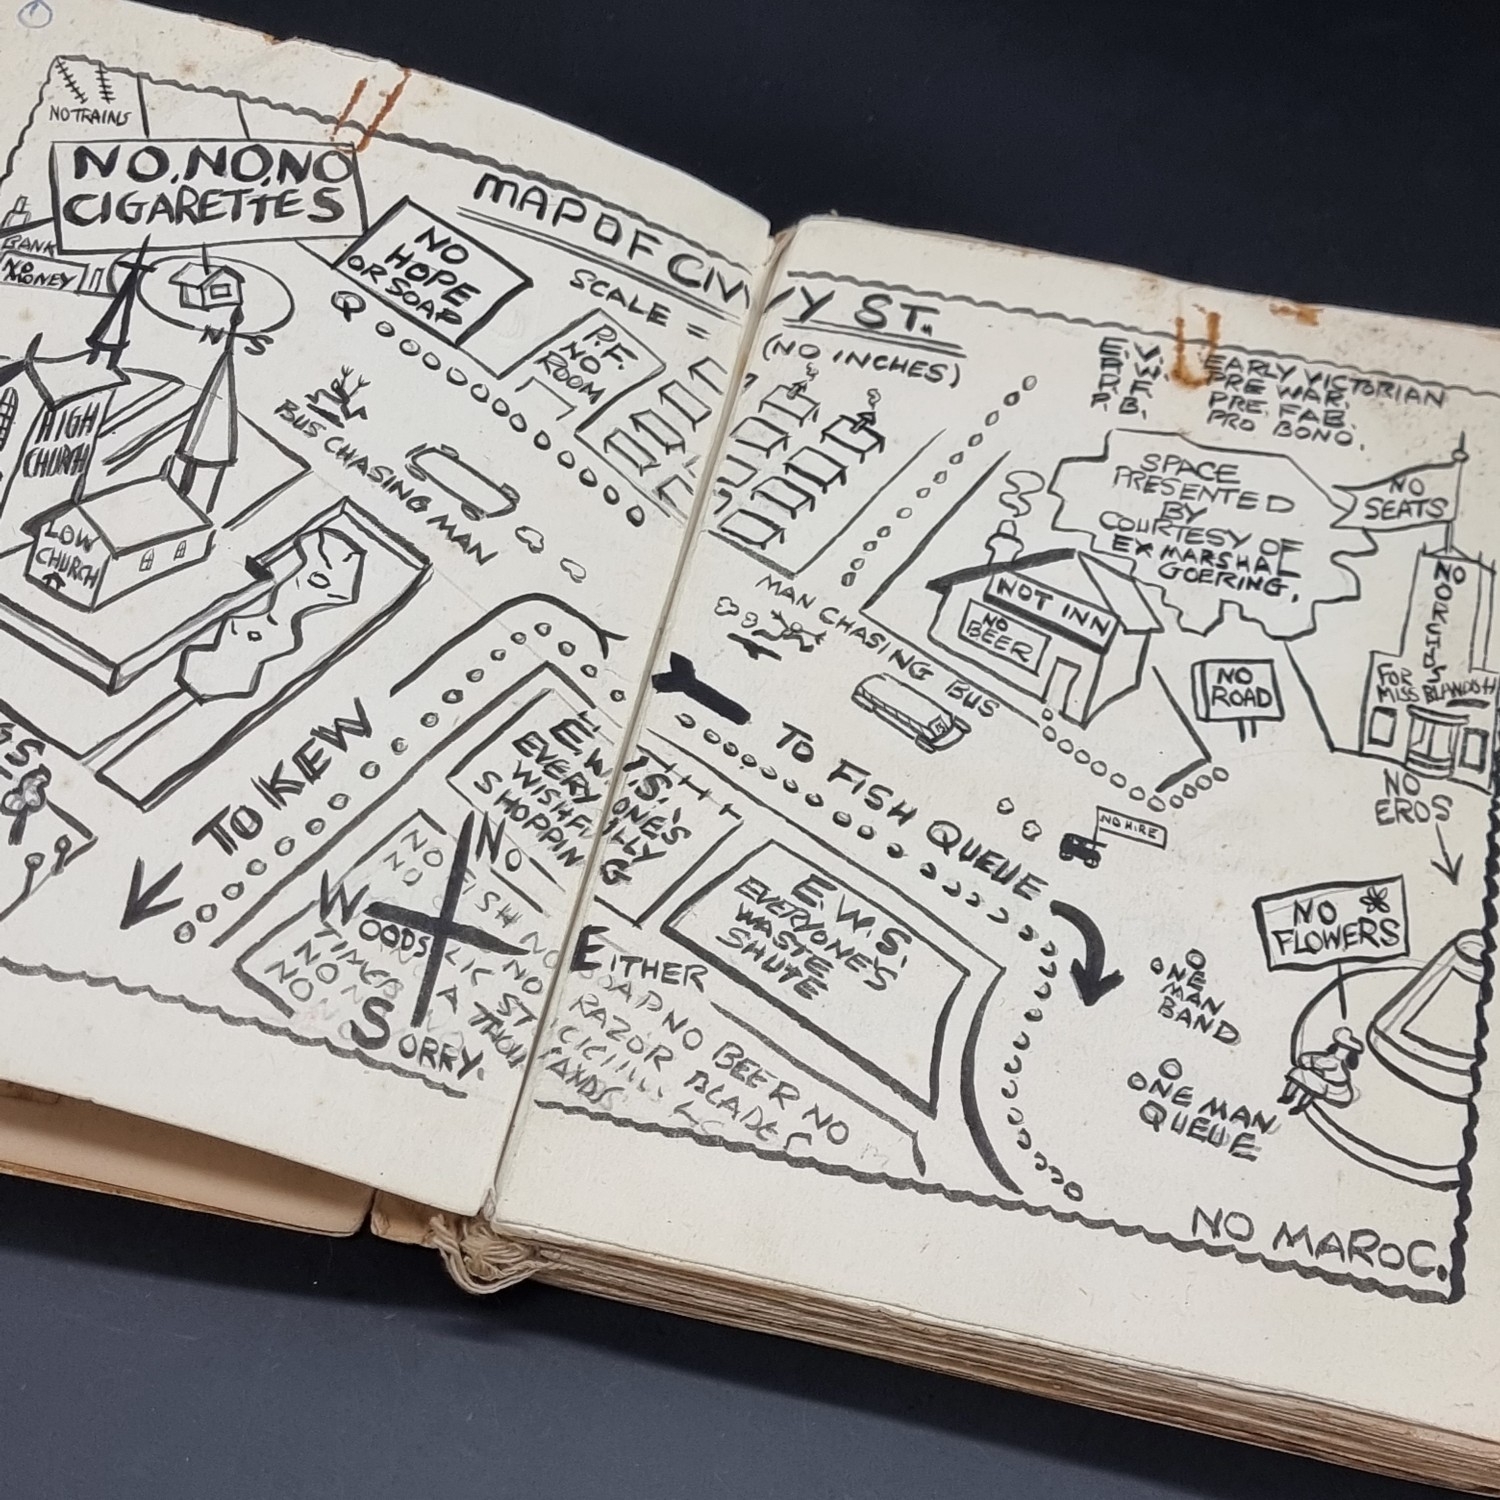 NO TRAINS
NO, NO, NO
CIGARETTES
BANK
NO
MONEY
MAP OF CIVVY ST.
SCALE =
(NO INCHES)
NO
HOPE
OR SOAP
Q
P.F.
NO
ROOM
BUS CHASING MAN
HIGH
CHURCH
LOW
CHURCH
E.V. EARLY VICTORIAN
P.W. PRE WAR.
P.F. PRE. FAB.
P.B. PRO BONO.
SPACE
PRESENTED
BY
COURTESY OF
EX MARSHAL
GOERING.
NO
SEATS
NOT INN
NO
BEER
MAN CHASING BUS
NO
ROAD
NO
FOR
MISS BLANDISH
NO
EROS
TO KEW
TO FISH QUEUE
NO HIRE
E.W.S.
EVERYONE'S
WISHFULLY
SHOPPING
E.W.S.
EVERYONE'S
WASTE
SHUTE
NO
WOODS
EITHER
SORRY.
NO FISH NO
NO
TIMES
NO
NO
NO
A THOUSANDS
NO BEER NO
RAZOR BLADES
NO
FLOWERS
ONE
MAN
BAND
ONE MAN
QUEUE
NO MAROC.